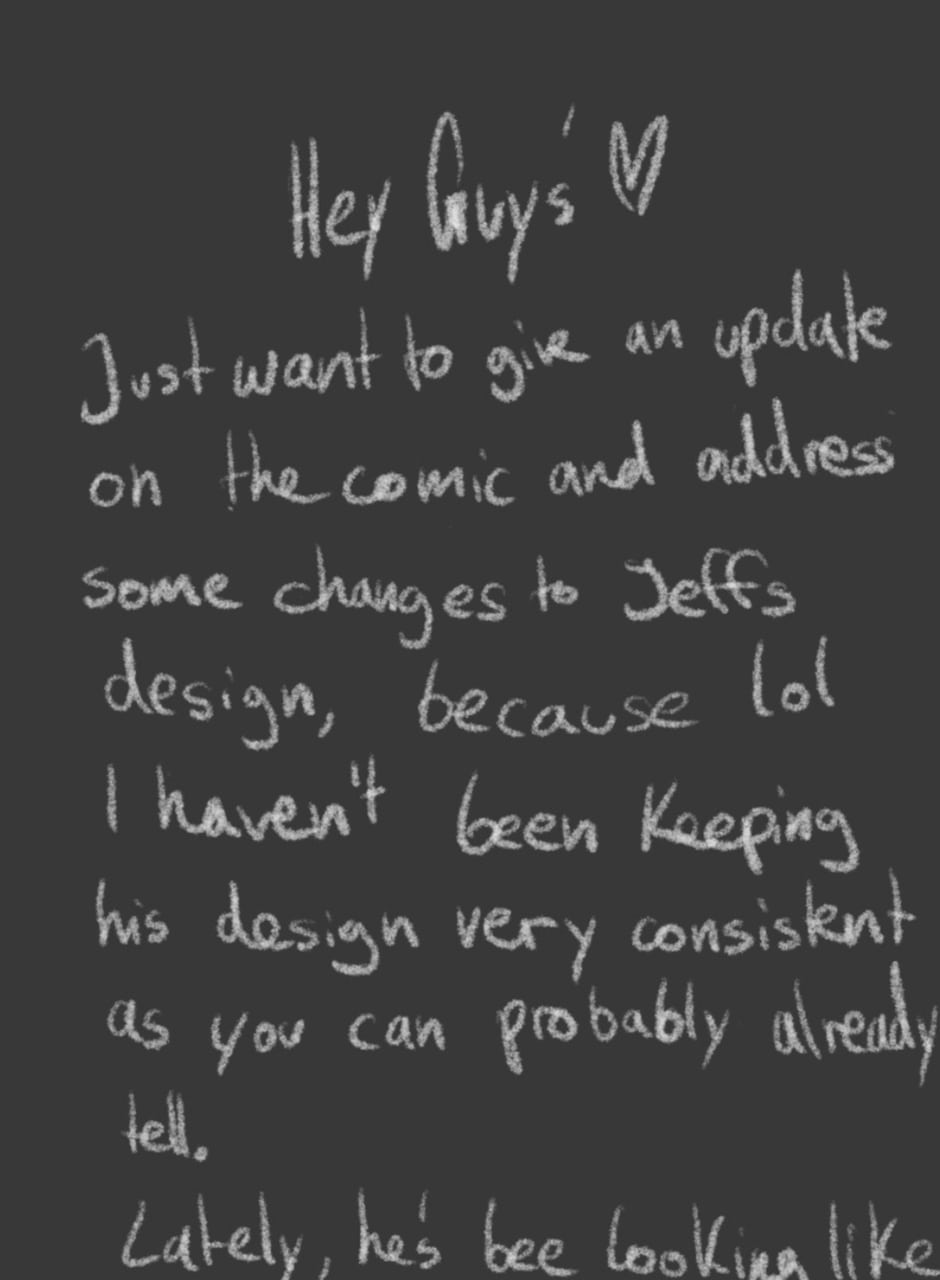 Hey Guys' ♡
Just want to give an update
on the comic and address
some changes to Jeffs
design, because lol
I haven't been Keeping
his design very consistent
as you can probably already
tell.
Lately, he's bee looking like